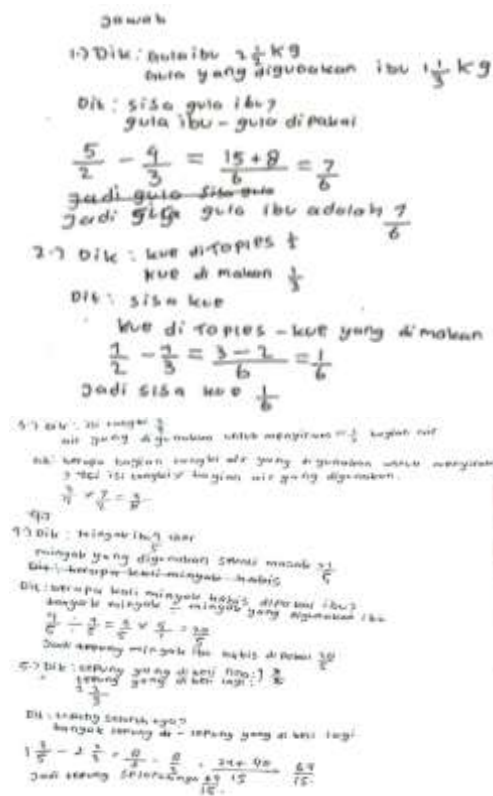 Jawab
1.) Dik : Gula ibu 2 1/2 kg
Gula yang digunakan ibu 1 1/3 kg
Dit : sisa gula ibu?
gula ibu - gula dipakai
5/2 - 4/3 = 15+8/6 = 7/6
Jadi gula sisa gula
Jadi sisa gula ibu adalah 7/6
2.) Dik : kue ditoples 1/2
kue di makan 1/3
Dit : sisa kue
kue di toples - kue yang dimakan
1/2 - 1/3 = 3-2/6 = 1/6
Jadi sisa kue 1/6
3.) Dik : isi tangki 3/4
air yang digunakan untuk menyiram = 1/2 bagian air
Dit : berapa bagian tangki air yang digunakan untuk menyiram
isi tangki x bagian air yang digunakan
3/4 x 1/2 = 3/8
4.) Dik : minyak ibu
minyak yang digunakan sekali masak 1/5
Dit : berapa kali minyak habis
Dit : berapa kali minyak habis dipakai ibu?
banyak minyak : minyak yang digunakan ibu
= 20/5
Jadi minyak ibu habis dipakai 20/5
5.) Dik : tepung yang dibeli 1 3/5
tepung yang dibeli lagi : 2 2/3
Dit : tepung seluruhnya?
banyak tepung - tepung yang dibeli lagi
1 3/5 - 2 2/3 = 8/5 - 8/3 = 24+40/15 = 64/15
Jadi tepung seluruhnya 64/15